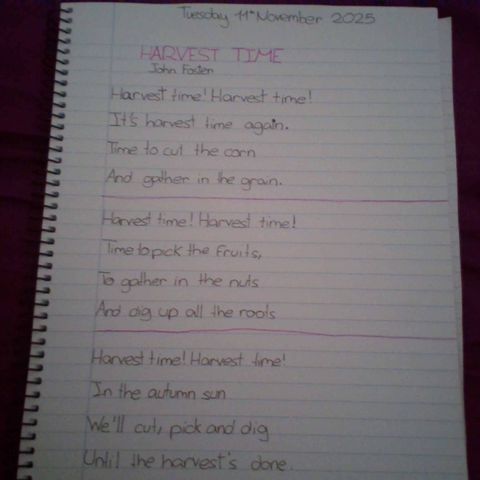 Tuesday 11th November 2025
HARVEST TIME
John Foster
Harvest time! Harvest time!
It's harvest time again.
Time to cut the corn
And gather in the grain.
Harvest time! Harvest time!
Time to pick the fruits,
To gather in the nuts
And dig up all the roots
Harvest time! Harvest time!
In the autumn sun
We'll cut, pick and dig
Until the harvest's done.